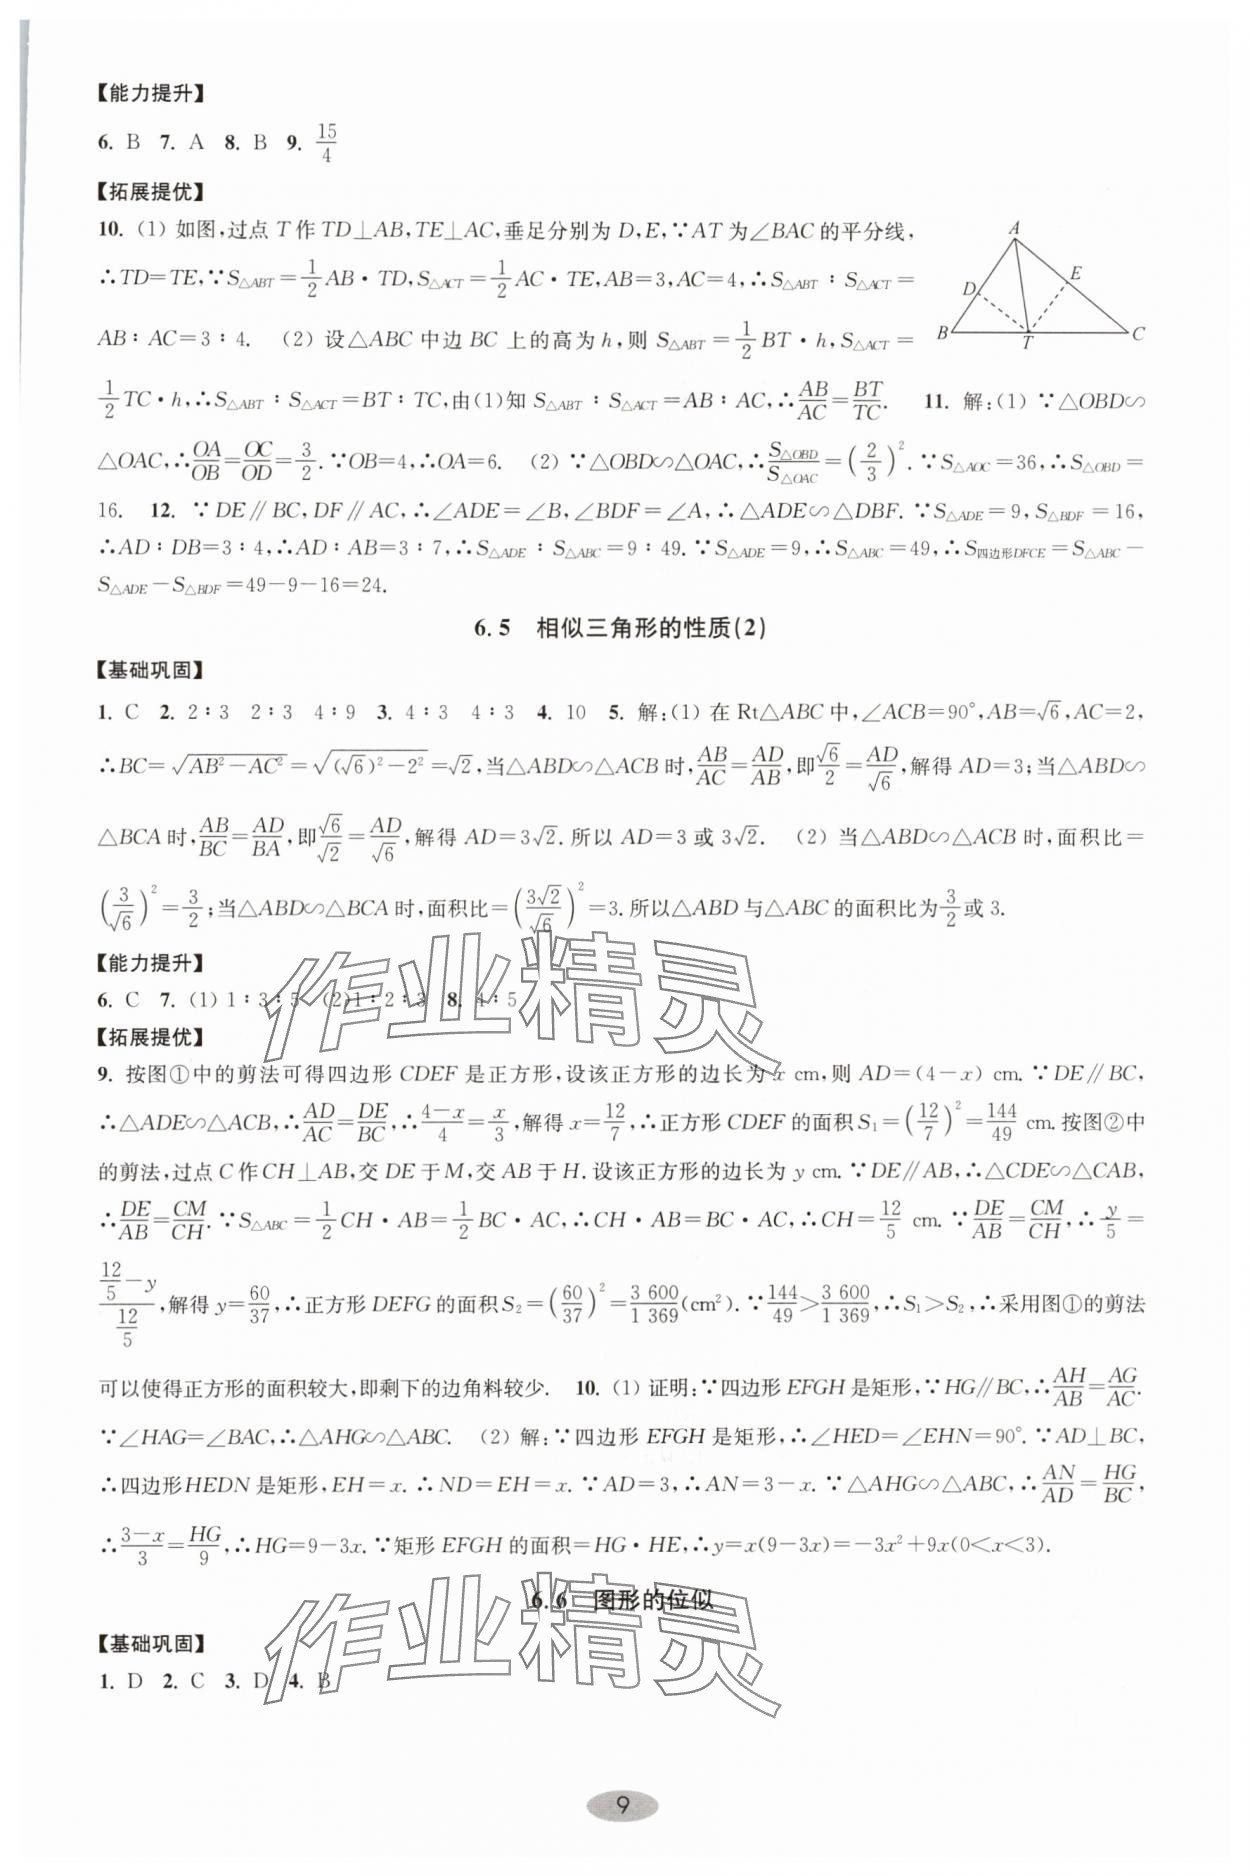 【能力提升】
6. B 7. A 8. B 9. 15/4
【拓展提优】
10. (1) 如图,过点 T 作 TD⊥AB,TE⊥AC,垂足分别为 D,E,∵AT 为∠BAC 的平分线,
∴TD=TE,∵S△ABT=1/2 AB·TD,S△ACT=1/2 AC·TE,AB=3,AC=4,∴S△ABT∶S△ACT=
AB∶AC=3∶4. (2) 设△ABC 中边 BC 上的高为 h,则 S△ABT=1/2 BT·h,S△ACT=
1/2 TC·h,∴S△ABT∶S△ACT=BT∶TC,由(1)知 S△ABT∶S△ACT=AB∶AC,∴AB/AC=BT/TC. 11. 解:(1) ∵△OBD∽
A
D
E
B
T
C
△OAC,∴OA/OB=OC/OD=3/2.∵OB=4,∴OA=6. (2) ∵△OBD∽△OAC,∴S△OBD/S△OAC=(2/3)².∵S△AOC=36,∴S△OBD=
16. 12. ∵DE∥BC,DF∥AC,∴∠ADE=∠B,∠BDF=∠A,∴△ADE∽△DBF.∵S△ADE=9,S△BDF=16,
∴AD∶DB=3∶4,∴AD∶AB=3∶7,∴S△ADE∶S△ABC=9∶49.∵S△ADE=9,∴S△ABC=49,∴S四边形DFCE=S△ABC−
S△ADE−S△BDF=49−9−16=24.
6.5 相似三角形的性质(2)
【基础巩固】
1. C 2. 2∶3 2∶3 4∶9 3. 4∶3 4∶3 4. 10 5. 解:(1) 在 Rt△ABC 中,∠ACB=90°,AB=√6,AC=2,
∴BC=√(AB²−AC²)=√((√6)²−2²)=√2,当△ABD∽△ACB 时,AB/AC=AD/AB,即√6/2=AD/√6,解得 AD=3;当△ABD∽
△BCA 时,AB/BC=AD/BA,即√6/√2=AD/√6,解得 AD=3√2.所以 AD=3 或 3√2. (2) 当△ABD∽△ACB 时,面积比=
(3/√6)²=3/2;当△ABD∽△BCA 时,面积比=(3√2/√6)²=3.所以△ABD 与△ABC 的面积比为3/2或 3.
【能力提升】
6. C 7. (1) 1∶3∶5 (2)1∶2∶3 8. 4∶5
【拓展提优】
9. 按图①中的剪法可得四边形 CDEF 是正方形,设该正方形的边长为 x cm,则 AD=(4−x) cm.∵DE∥BC,
∴△ADE∽△ACB,∴AD/AC=DE/BC,∴(4−x)/4=x/3,解得 x=12/7,∴正方形 CDEF 的面积 S₁=(12/7)²=144/49 cm.按图②中
的剪法,过点 C 作 CH⊥AB,交 DE 于 M,交 AB 于 H.设该正方形的边长为 y cm.∵DE∥AB,∴△CDE∽△CAB,
∴DE/AB=CM/CH.∵S△ABC=1/2 CH·AB=1/2 BC·AC,∴CH·AB=BC·AC,∴CH=12/5 cm.∵DE/AB=CM/CH,∴y/5=
(12/5−y)/(12/5),解得 y=60/37,∴正方形 DEFG 的面积 S₂=(60/37)²=3 600/1 369(cm²).∵144/49>3 600/1 369,∴S₁>S₂,∴采用图①的剪法
可以使得正方形的面积较大,即剩下的边角料较少. 10. (1) 证明:∵四边形 EFGH 是矩形,∵HG∥BC,∴AH/AB=AG/AC.
∵∠HAG=∠BAC,∴△AHG∽△ABC. (2) 解:∵四边形 EFGH 是矩形,∴∠HED=∠EHN=90°.∵AD⊥BC,
∴四边形HEDN 是矩形,EH=x.∴ND=EH=x.∵AD=3,∴AN=3−x.∵△AHG∽△ABC,∴AN/AD=HG/BC,
∴(3−x)/3=HG/9,∴HG=9−3x.∵矩形 EFGH 的面积=HG·HE,∴y=x(9−3x)=−3x²+9x(0<x<3).
6.6 图形的位似
【基础巩固】
1. D 2. C 3. D 4. B
9
作业精灵
作业精灵